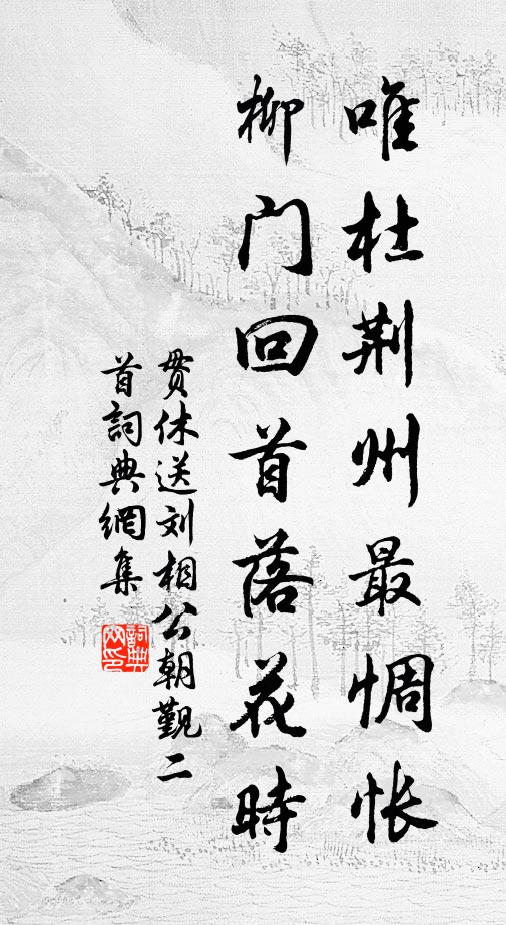 唯杜荆州最惆怅
柳门回首落花時
贯休送刘相公朝觐二
首詞典網集
詞典
网印